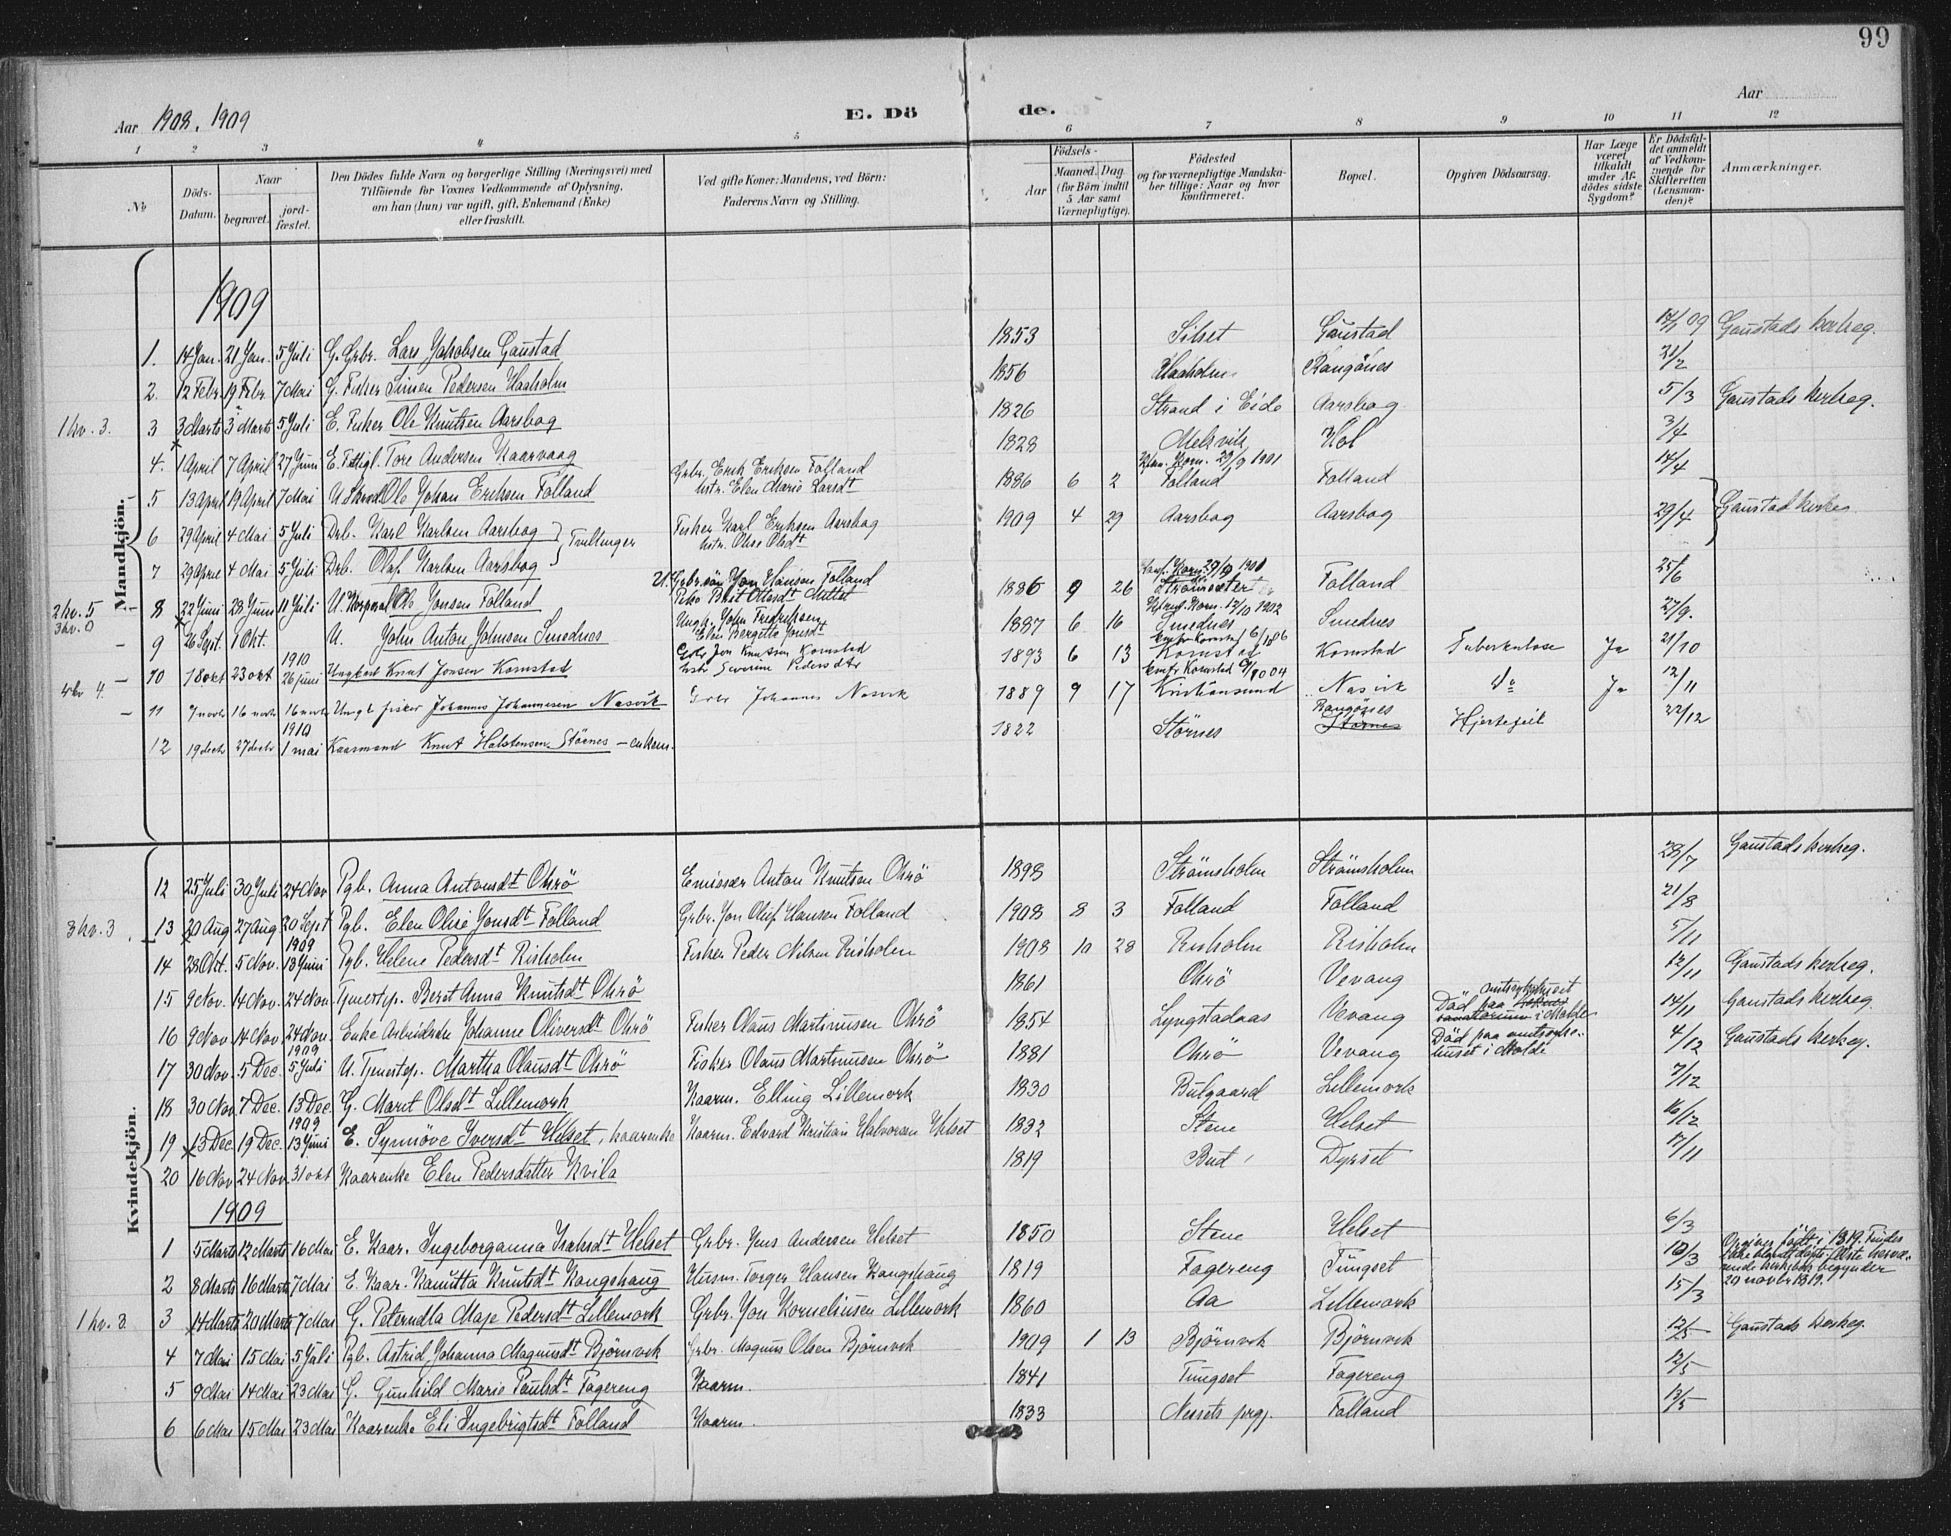 99
Aar 1908. 1909
E. Dö de.
Aar
1 2 3 4 5 6 7 8 9 10 11 12
No
Döds-Datum.
Naar
begravet.
jord-fæstet.
Den Dödes fulde Navn og borgerlige Stilling (Næringsvei) med
Tilföiende for Voxnes Vedkommende af Oplysning,
om han (hun) var ugift, gift, Enkemand (Enke)
eller fraskilt.
Ved gifte Koner: Mandens, ved Börn:
Faderens Navn og Stilling.
Födsels-
Aar
Maaned. Dag
(for Börn indtil
5 Aar samt
Værnepligtige).
Födested
og for værnepligtige Mandska-
ber tillige: Naar og hvor
konfirmeret.
Bopæl.
Opgiven Dödsaarsag.
Har Læge
været
tilkaldt
under Af-
dödes sidste
Sygdom?
Er Dödsfal-
det anmeldt
af Vedkom-
mende for
Skifteretten
(Lensman-
den)?
Anmærkninger.
Mandkjön.
1909
1. 14 Jan. 21 Jan. 5 Juli G. Grbr. Lars Jakobsen Gaustad 1853 Silset Gaustad 14/1 09 Gaustads kirkeg.
2. 12 Febr. 19 Febr. 7 Mai G. Fisker Simen Pedersen Haaholm 1856 Haaholm Kangönes 21/2
1 kv. 3. 3 3 Marts 3 Marts 5 Juli E. Fisker Ole Knutsen Aarsbog 1826 Strand i Eide Aarsbog 5/3 Gaustads kirkeg.
4. 1 April 7 April 27 Juni E. Fattigl. Tore Andersen Kaarvaag 1828 Mekvik Hol 3/4
5 13 April 19 April 7 Mai U. Skred. Ole Johan Eriksen Folland Grbr. Erik Eriksen Folland Hstr. Elen Marie Larsdt 1886 6 2 Korn. 29/9 1901 Folland Folland 14/4
6 29 April 4 Mai 5 Juli Drb. Karl Karlsen Aarsbog Tvillinger Fisker Karl Eriksen Aarsbog Hstr. Oline Olsdt 1909 4 29 Aarsbog Aarsbog 29/4 Gaustad kirkeg
7 29 April 4 Mai 5 Juli Drb. Olaf Karlsen Aarsbog
2 kv. 5 8 22 Juni 28 Juni 11 Juli U. Korporal Ole Jonsen Folland U. Grbr.søn Jon Hansen Folland Pike Brit Ottesdt Mittet 1886 9 26 Korn. 29/9 1901 Strömsæter Folland 25/6
3 kv. 0 9 26 Sept. 1 Okt. U. John Anton Johnsen Smednes Ungk. John Fredriksen Elen Bergitta Jonsdt 1887 6 16 Korn. 12/10 1902 Smednes Smednes 27/9.
10 18 okt 23 okt 1910 26 juni Ungkarl Knut Jonsen Kornstad Grbr Jon Knutsen Kornstad hstr Severine Pedersdtr 1893 6 13 Kornstad Kornstad Tuberkulose Ja 21/10
4 kv 4. 11 7 novbr 16 novbr 16 novbr Ungk fisker Johannes Johannesen Nasvik Grbr Johannes Nasvik 1889 9 17 Kornstad 9/10 04 Kristiansund Nasvik do Ja 12/11
12 19 decbr 27 decbr 1910 1 mai Kaarmand Knut Halstensen Störnes - enkem. 1822 Störnes Kangönes Störnes Hjertefeil 22/12
Kvindekjön.
12 25 Juli 30 Juli 24 Nov Pgb. Anna Antonsdt Ohrö Emissær Anton Knutsen Ohrö 1898 Strömsholm Strömsholm 28/7 Gaustads kirkeg.
3 kv. 3 13 20 Aug 27 Aug 20 Sept Pgb. Elen Olise Jonsdt Folland Grbr. Jon Olof Hansen Folland 1908 8 3 Folland Folland 21/8
14 28 Okt. 5 Nov. 1909 13 Juni Pgb. Helene Pedersdt Risholm Fisker Peder Nilsen Risholm 1908 10 28 Risholm Risholm 5/11
15 9 Nov. 14 Nov. 24 Nov. Tjenestep. Beret Anna Knutsdt Ohrö 1861 Ohrö Vevang 12/11 Gaustads kirkeg.
16 9 Nov. 14 Nov. 24 Nov. Enke Arbeiderske Johanne Oliversdt Ohrö Fisker Olaus Martinusen Ohrö 1854 Lyngstadaas Vevang Död paa amtssykehuset sanatorium i Molde 14/11 Gaustads kirkeg.
17 30 Nov. 5 Dec. 1909 5 Juli U. Tjenestep. Martha Olausdt Ohrö Fisker Olaus Martinusen Ohrö 1881 Ohrö Vevang Död paa amtssyke-huset i Molde 4/12 Gaustads kirkeg.
18 30 Nov 7 Dec. 13 Dec. G. Marit Olsdt Lillemork Kaarm. Elling Lillemork 1830 Bulgaard Lillemork 7/12
19 13 Dec. 19 Dec. 1909 13 Juni E. Synnöve Iversdt Helset, kaarenke Kaarm. Edvard Kristian Halvorsen Helset 1832 Stene Helset 16/12
20 16 Nov 24 Nov. 31 okt Kaarenke Elen Pedersdatter Kvila 1819 Bud Dyrset 17/11
1909
1 5 Marts 12 Marts 16 Mai E. Kaar. Ingeborganna Isaksdt Helset Grbr. Jens Andersen Helset 1850 Stene Helset 6/3
2 8 Marts 16 Marts 7 Mai E. Kaar. Kanutta Knutsdt Kangshaug Husm. Torger Hansen Kangshaug 1819 Fagereng Tungset 10/3 Opgiver födt i 1819. Findes ikke blandt döpte. Ældste herværende kirkebok begynder 20 novbr 1819.
1 kv. 3. 3 14 Marts 20 Marts 7 Mai G. Peternella Maje Pedersdt Lillemork Grbr. Jon Korneliusen Lillemork 1860 Aa Lillemork 15/3
4 7 Mai 15 Mai 5 Juli Pgb. Astrid Johanna Magnusdt Björnvik Grbr. Magnus Olsen Björnvik 1909 1 13 Björnvik Björnvik 12/5 Gaustads kirkeg.
5 9 Mai 14 Mai 23 Mai G. Gunhild Marie Paulsdt Fagereng Kaarm. 1841 Tungset Fagereng 12/5
6 6 Mai 15 Mai 23 Mai Kaarenke Eli Ingebrigtsdt Folland Kaarm. 1833 Nessets prgj. Folland 13/5